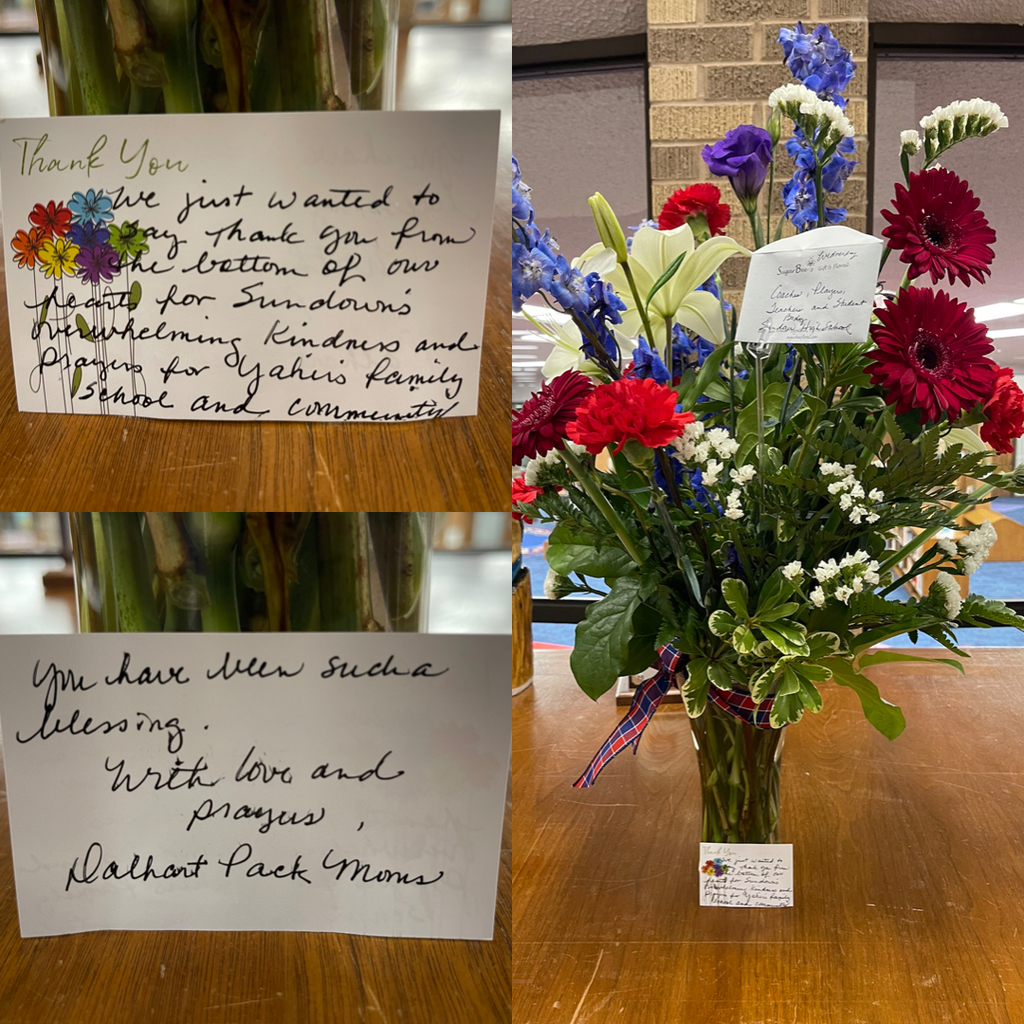 Thank You
We just wanted to
say thank you from
the bottom of our
hearts for Sundown's
overwhelming kindness and
prayers for Yahir's family
school and community
You have been such a
blessing.
With love and
prayers,
Dalhart Pack Moms
Wednesday
SugarBee's
Coaches, Players,
Teachers and Student
Body
Sundown High School
Thank You
We just wanted to
say thank you from
the bottom of our
hearts for Sundown's
overwhelming kindness and
prayers for Yahir's family
school and community